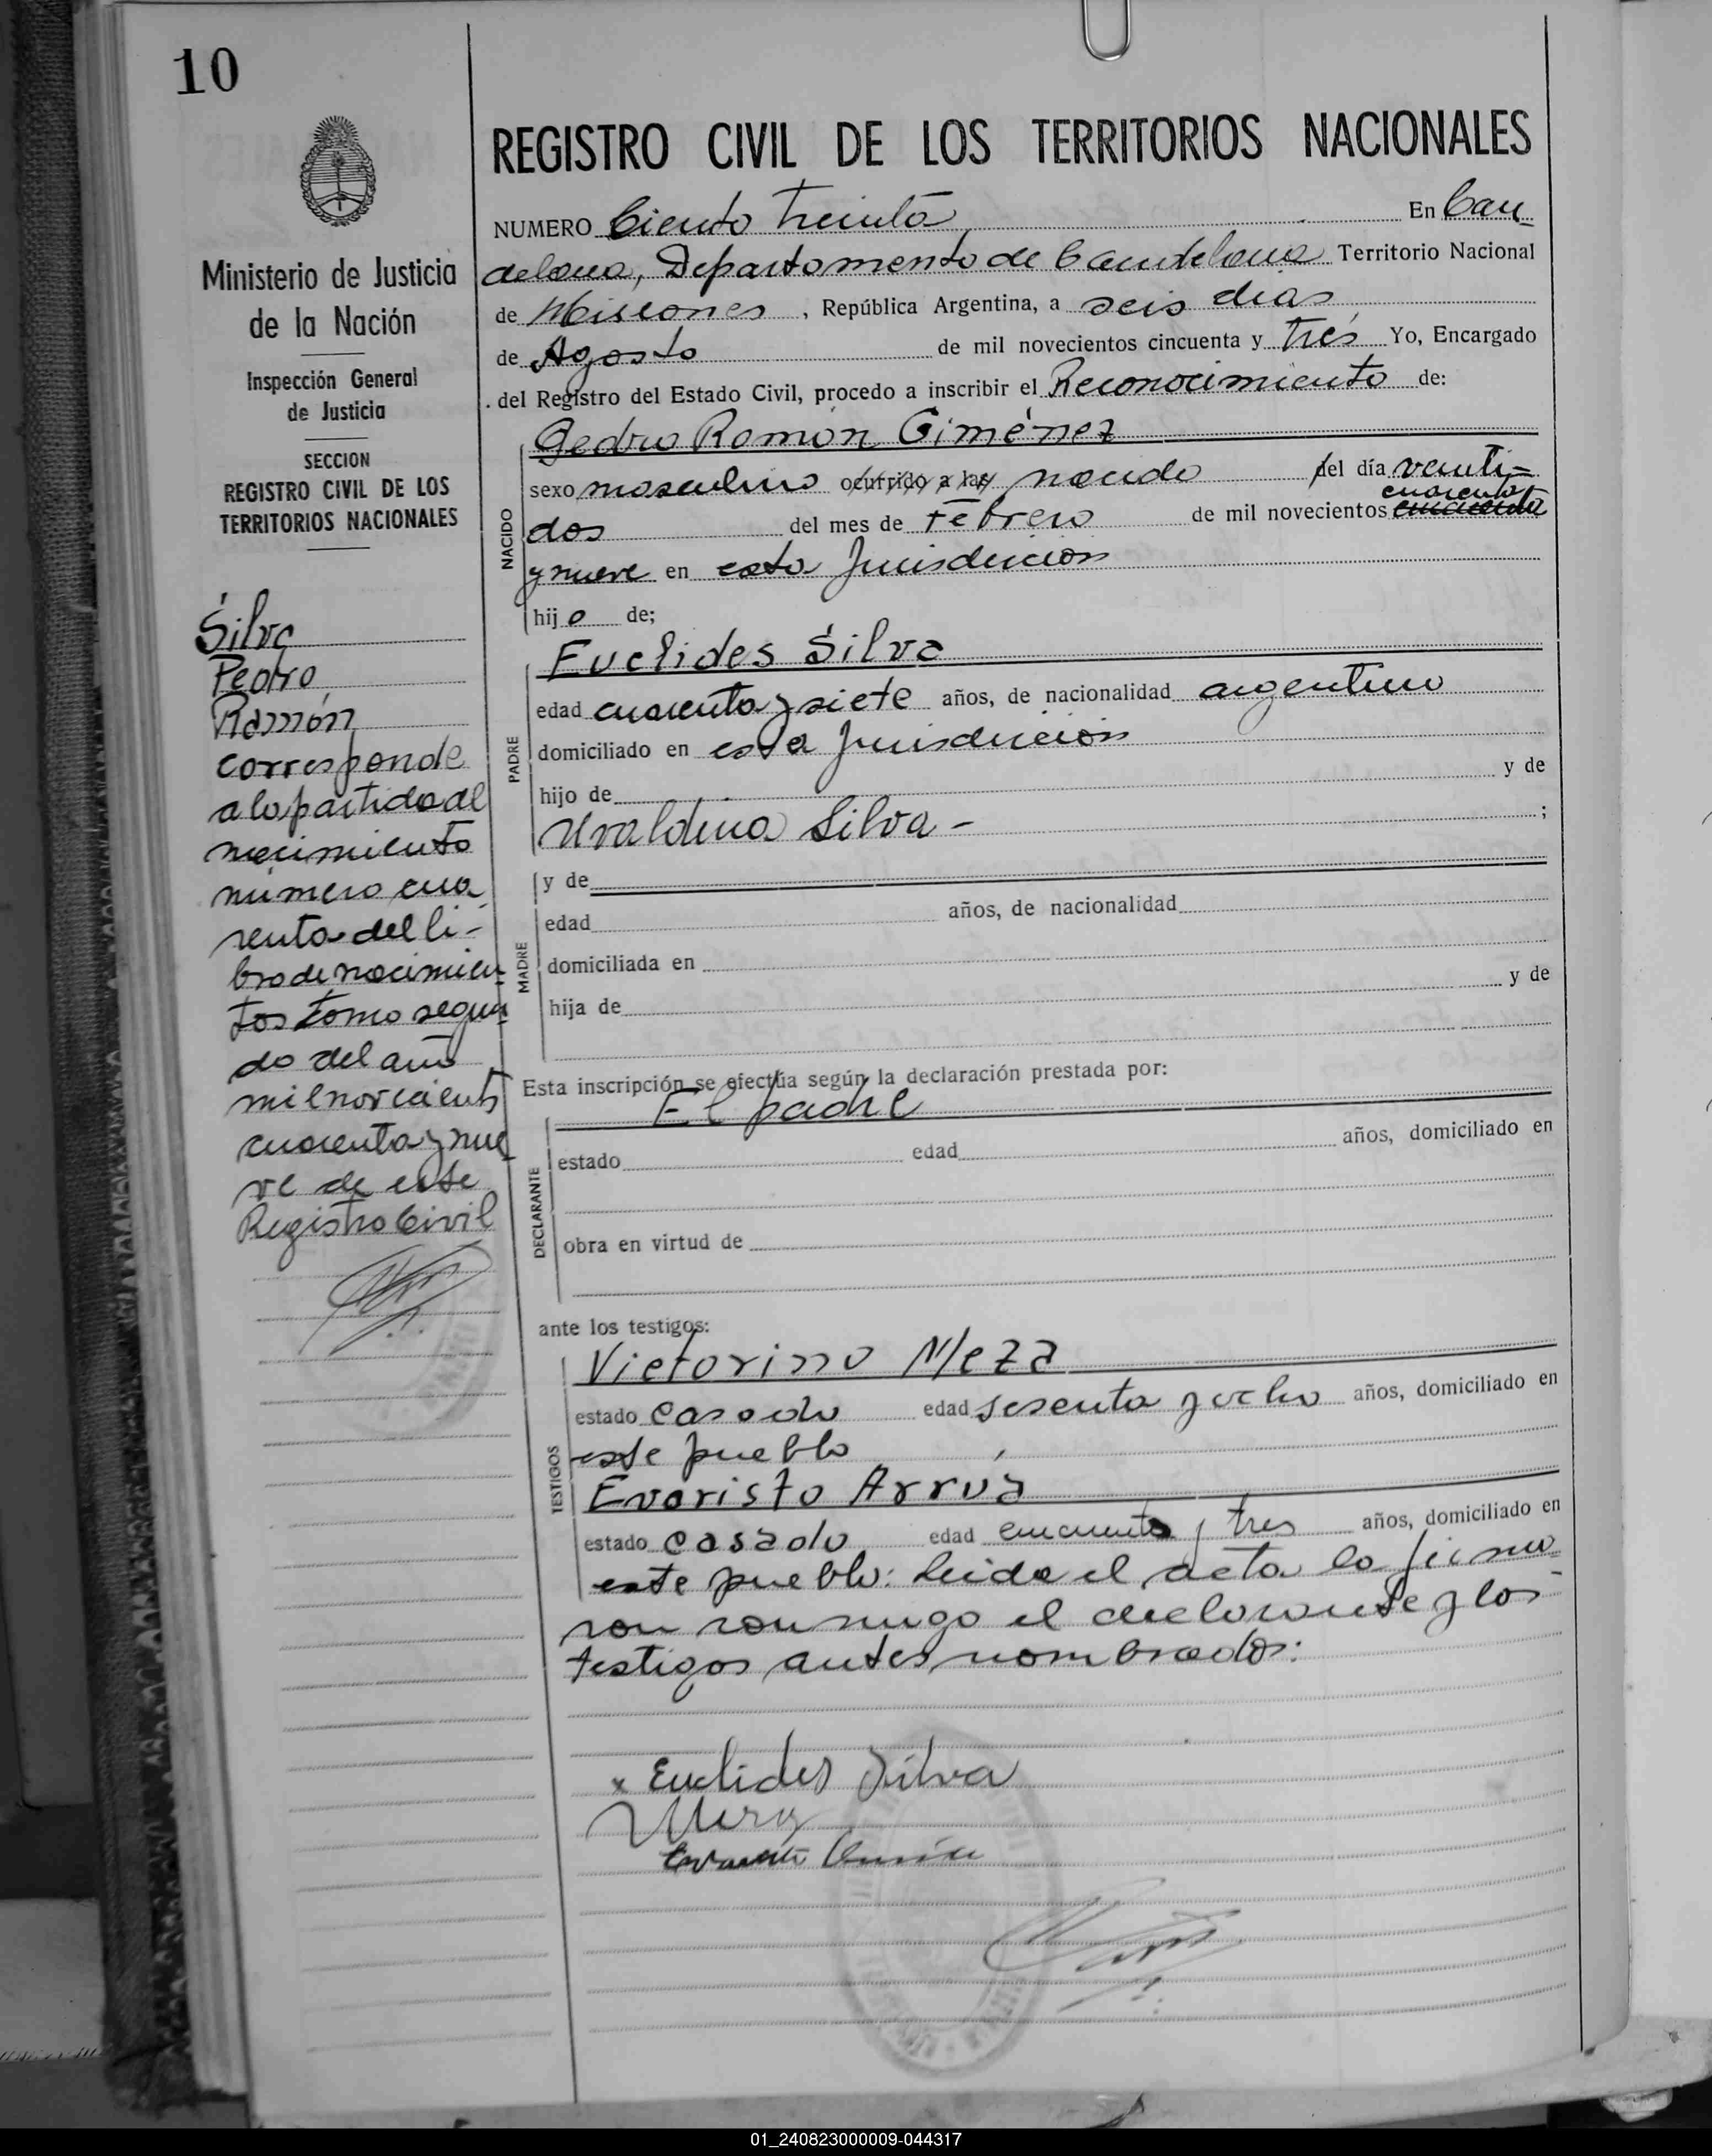 10
REGISTRO CIVIL DE LOS TERRITORIOS NACIONALES
NUMERO Ciento treinta En Can
delaria, Departamento de Candelaria Territorio Nacional
de Misiones, República Argentina, a seis días
de Agosto de mil novecientos cincuenta y tres Yo, Encargado
del Registro del Estado Civil, procedo a inscribir el Reconocimiento de:
NACIDO
Pedro Ramón Giménez
sexo masculino ocurrido a las nacido del día veinti-
cuarenta
dos del mes de Febrero de mil novecientos cincuenta
y nueve en esta Jurisdicción
hijo de;
PADRE
Euclides Silva
edad cuarenta y siete años, de nacionalidad argentino
domiciliado en esta Jurisdicción
hijo de y de
Uvaldina Silva - ;
MADRE
y de
edad años, de nacionalidad
domiciliada en
hija de y de
Esta inscripción se efectúa según la declaración prestada por:
DECLARANTE
El padre
estado edad años, domiciliado en
obra en virtud de
ante los testigos:
TESTIGOS
Victorino Meza
estado casado edad sesenta y ocho años, domiciliado en
este pueblo
Evaristo Arrúa
estado casado edad cincuenta y tres años, domiciliado en
este pueblo: Leida el acta la firma
ron conmigo el declarante y los
testigos antes nombrados:
x Euclides Silva
Meza
Evaristo Arrúa
Ministerio de Justicia
de la Nación
Inspección General
de Justicia
SECCION
REGISTRO CIVIL DE LOS
TERRITORIOS NACIONALES
Silva
Pedro
Ramón
corresponde
a la partida de
nacimiento
número cua
renta del li-
bro de nacimien
tos tomo segun
do del año
mil novecientos
cuarenta y nue
ve de este
Registro Civil
01_240823000009-044317